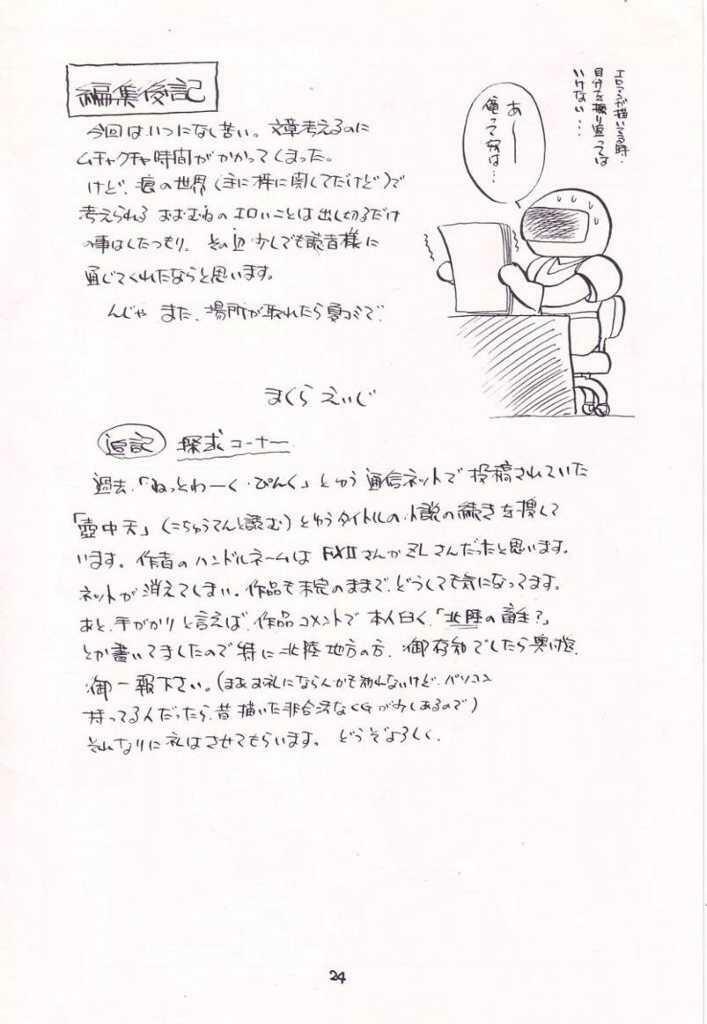 編集後記
今回はいつになく苦い。文章考えるのに
ムチャクチャ時間がかかってしまった。
けど、痕の世界(主に梓に関してだけど)で
考えられるおおむねのエロいことは出し切るだけ
の事はしたつもり。その辺少しでも読者様に
通じてくれたならと思います。
んじゃ また、場所が取れたら夏コミで。
まくら えいじ
エロマンガ描いてる時、
自分を振り返っては
いけない…
あ〜
俺って奴は…
追記 探求コーナー
過去、「ねっとわーく・ぴんく」とゆう通信ネットで投稿されていた
「壺中天」(こちゅうてんと読む)とゆうタイトルの小説の続きを捜して
います。作者のハンドルネームは FXIIさんかZLさんだったと思います。
ネットが消えてしまい、作品も未完のままで、どうしても気になってます。
あと、手がかりと言えば、作品コメントで本人曰く、「北陸の畜生?」
とか書いてましたので特に北陸地方の方、御存知でしたら奥付迄、
御一報下さい。(まあお礼にならんかも知れないけど、パソコン
持ってるんだったら、昔描いた非合法なCGが少しあるので)
それなりに礼はさせてもらいます。どうぞよろしく。
24